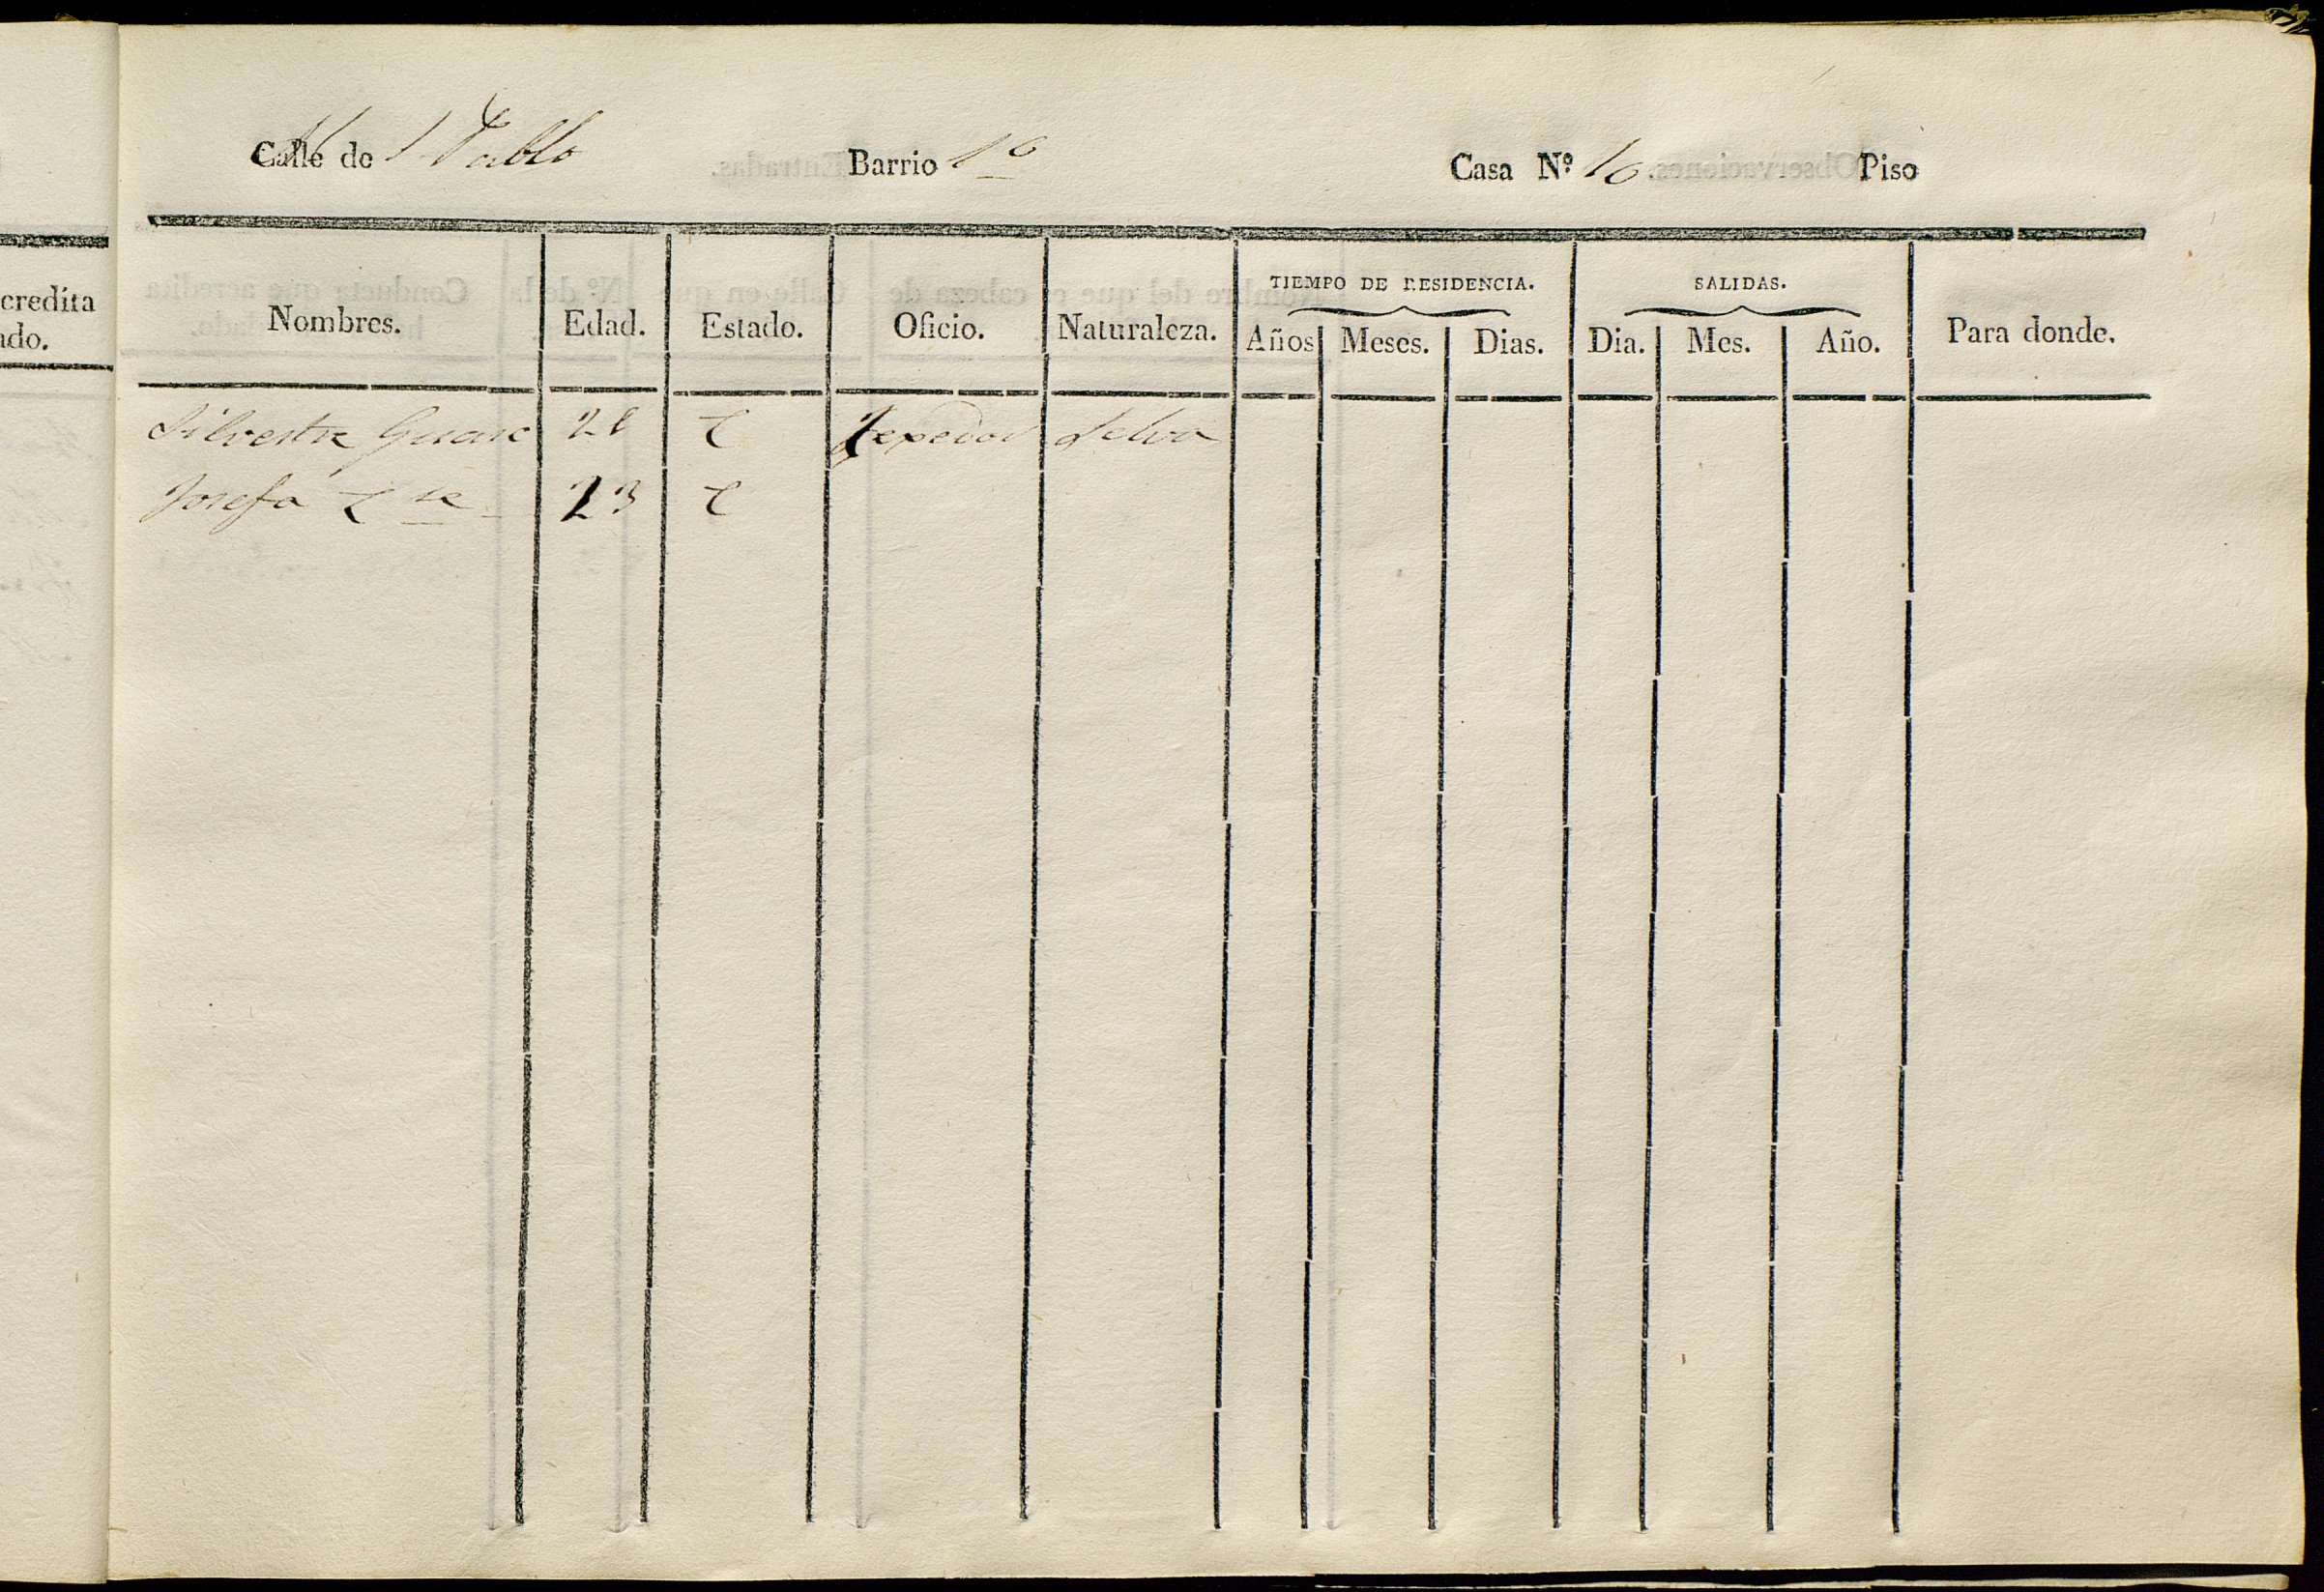 Calle de S Pablo Barrio 16 Casa Nº 10 Piso
credita
ado.
TIEMPO DE RESIDENCIA. SALIDAS.
Nombres. Edad. Estado. Oficio. Naturaleza. Años Meses. Dias. Dia. Mes. Año. Para donde.
Silvestre 28 C Texedor Selva
Josefa 23 C